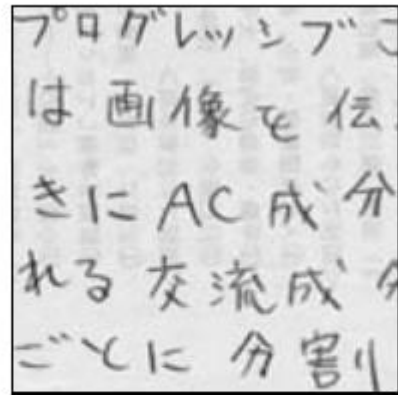 プログレッシブこ
は画像を伝
きにAC成分
れる交流成分
ごとに分割